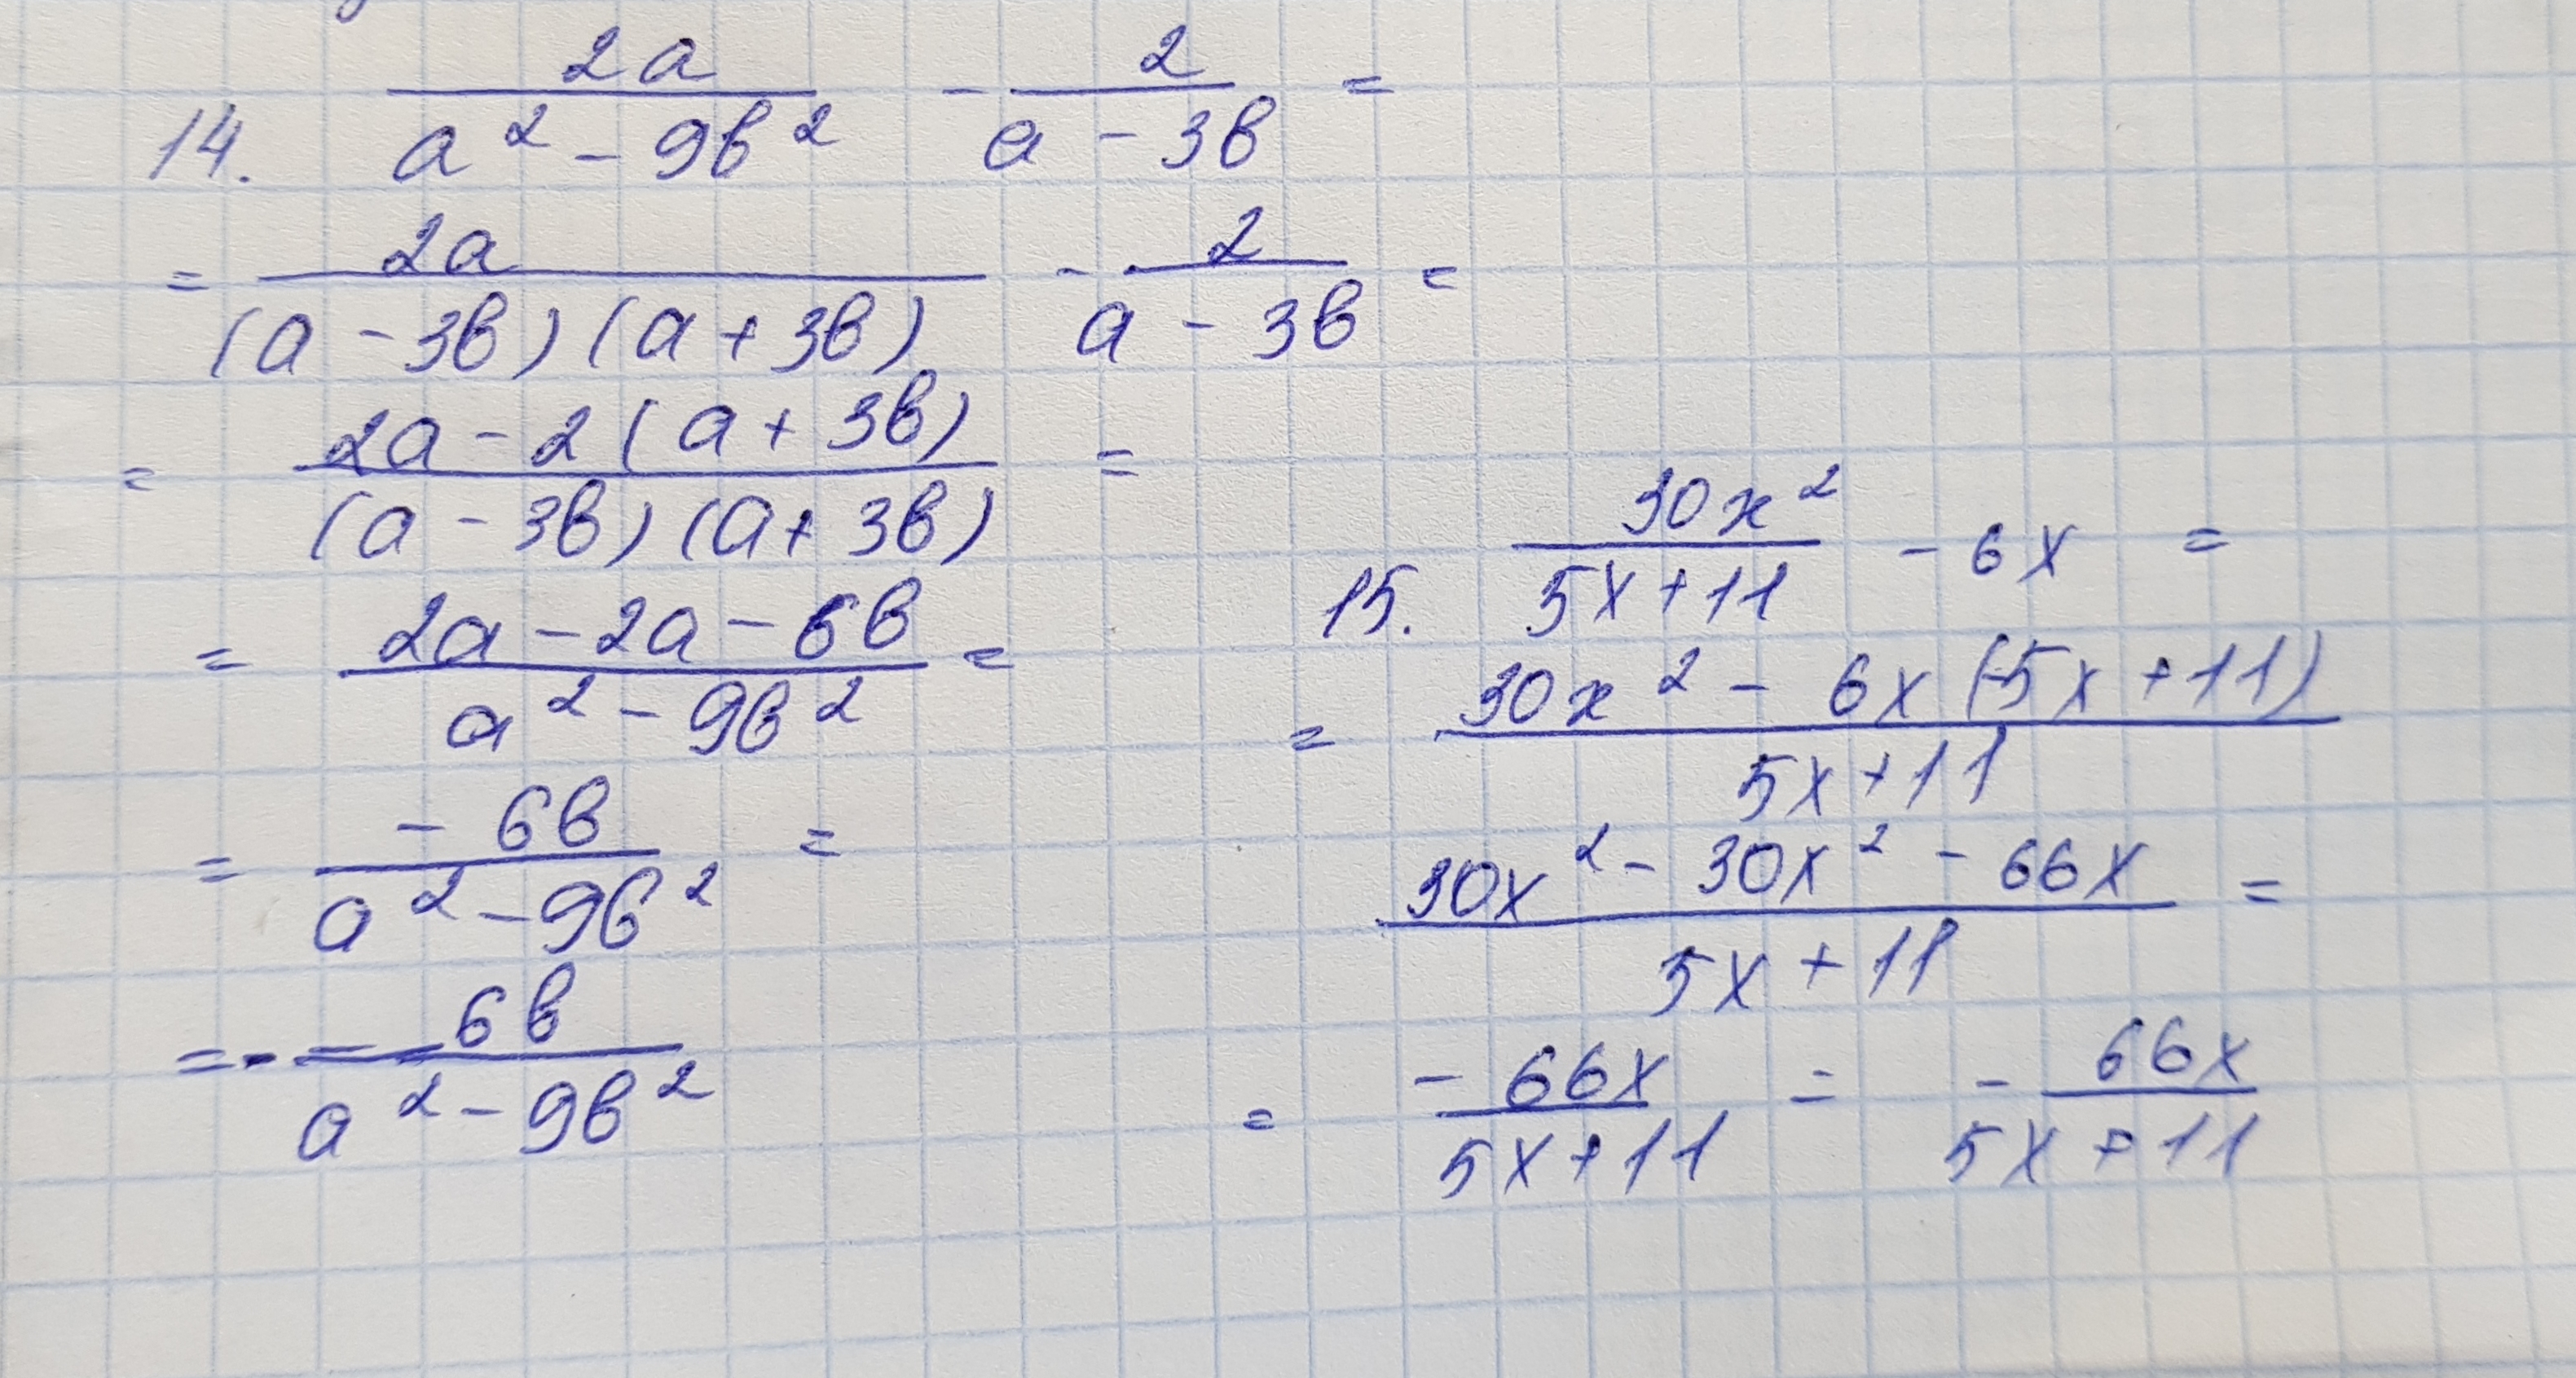 14. 2a / (a² - 9b²) - 2 / (a - 3b) =
= 2a / ((a - 3b)(a + 3b)) - 2 / (a - 3b) =
= (2a - 2(a + 3b)) / ((a - 3b)(a + 3b)) =
= (2a - 2a - 6b) / (a² - 9b²) =
= -6b / (a² - 9b²) =
= - 6b / (a² - 9b²)
15. 30x² / (5x + 11) - 6x =
= (30x² - 6x(5x + 11)) / (5x + 11)
(30x² - 30x² - 66x) / (5x + 11) =
= -66x / (5x + 11) = - 66x / (5x + 11)